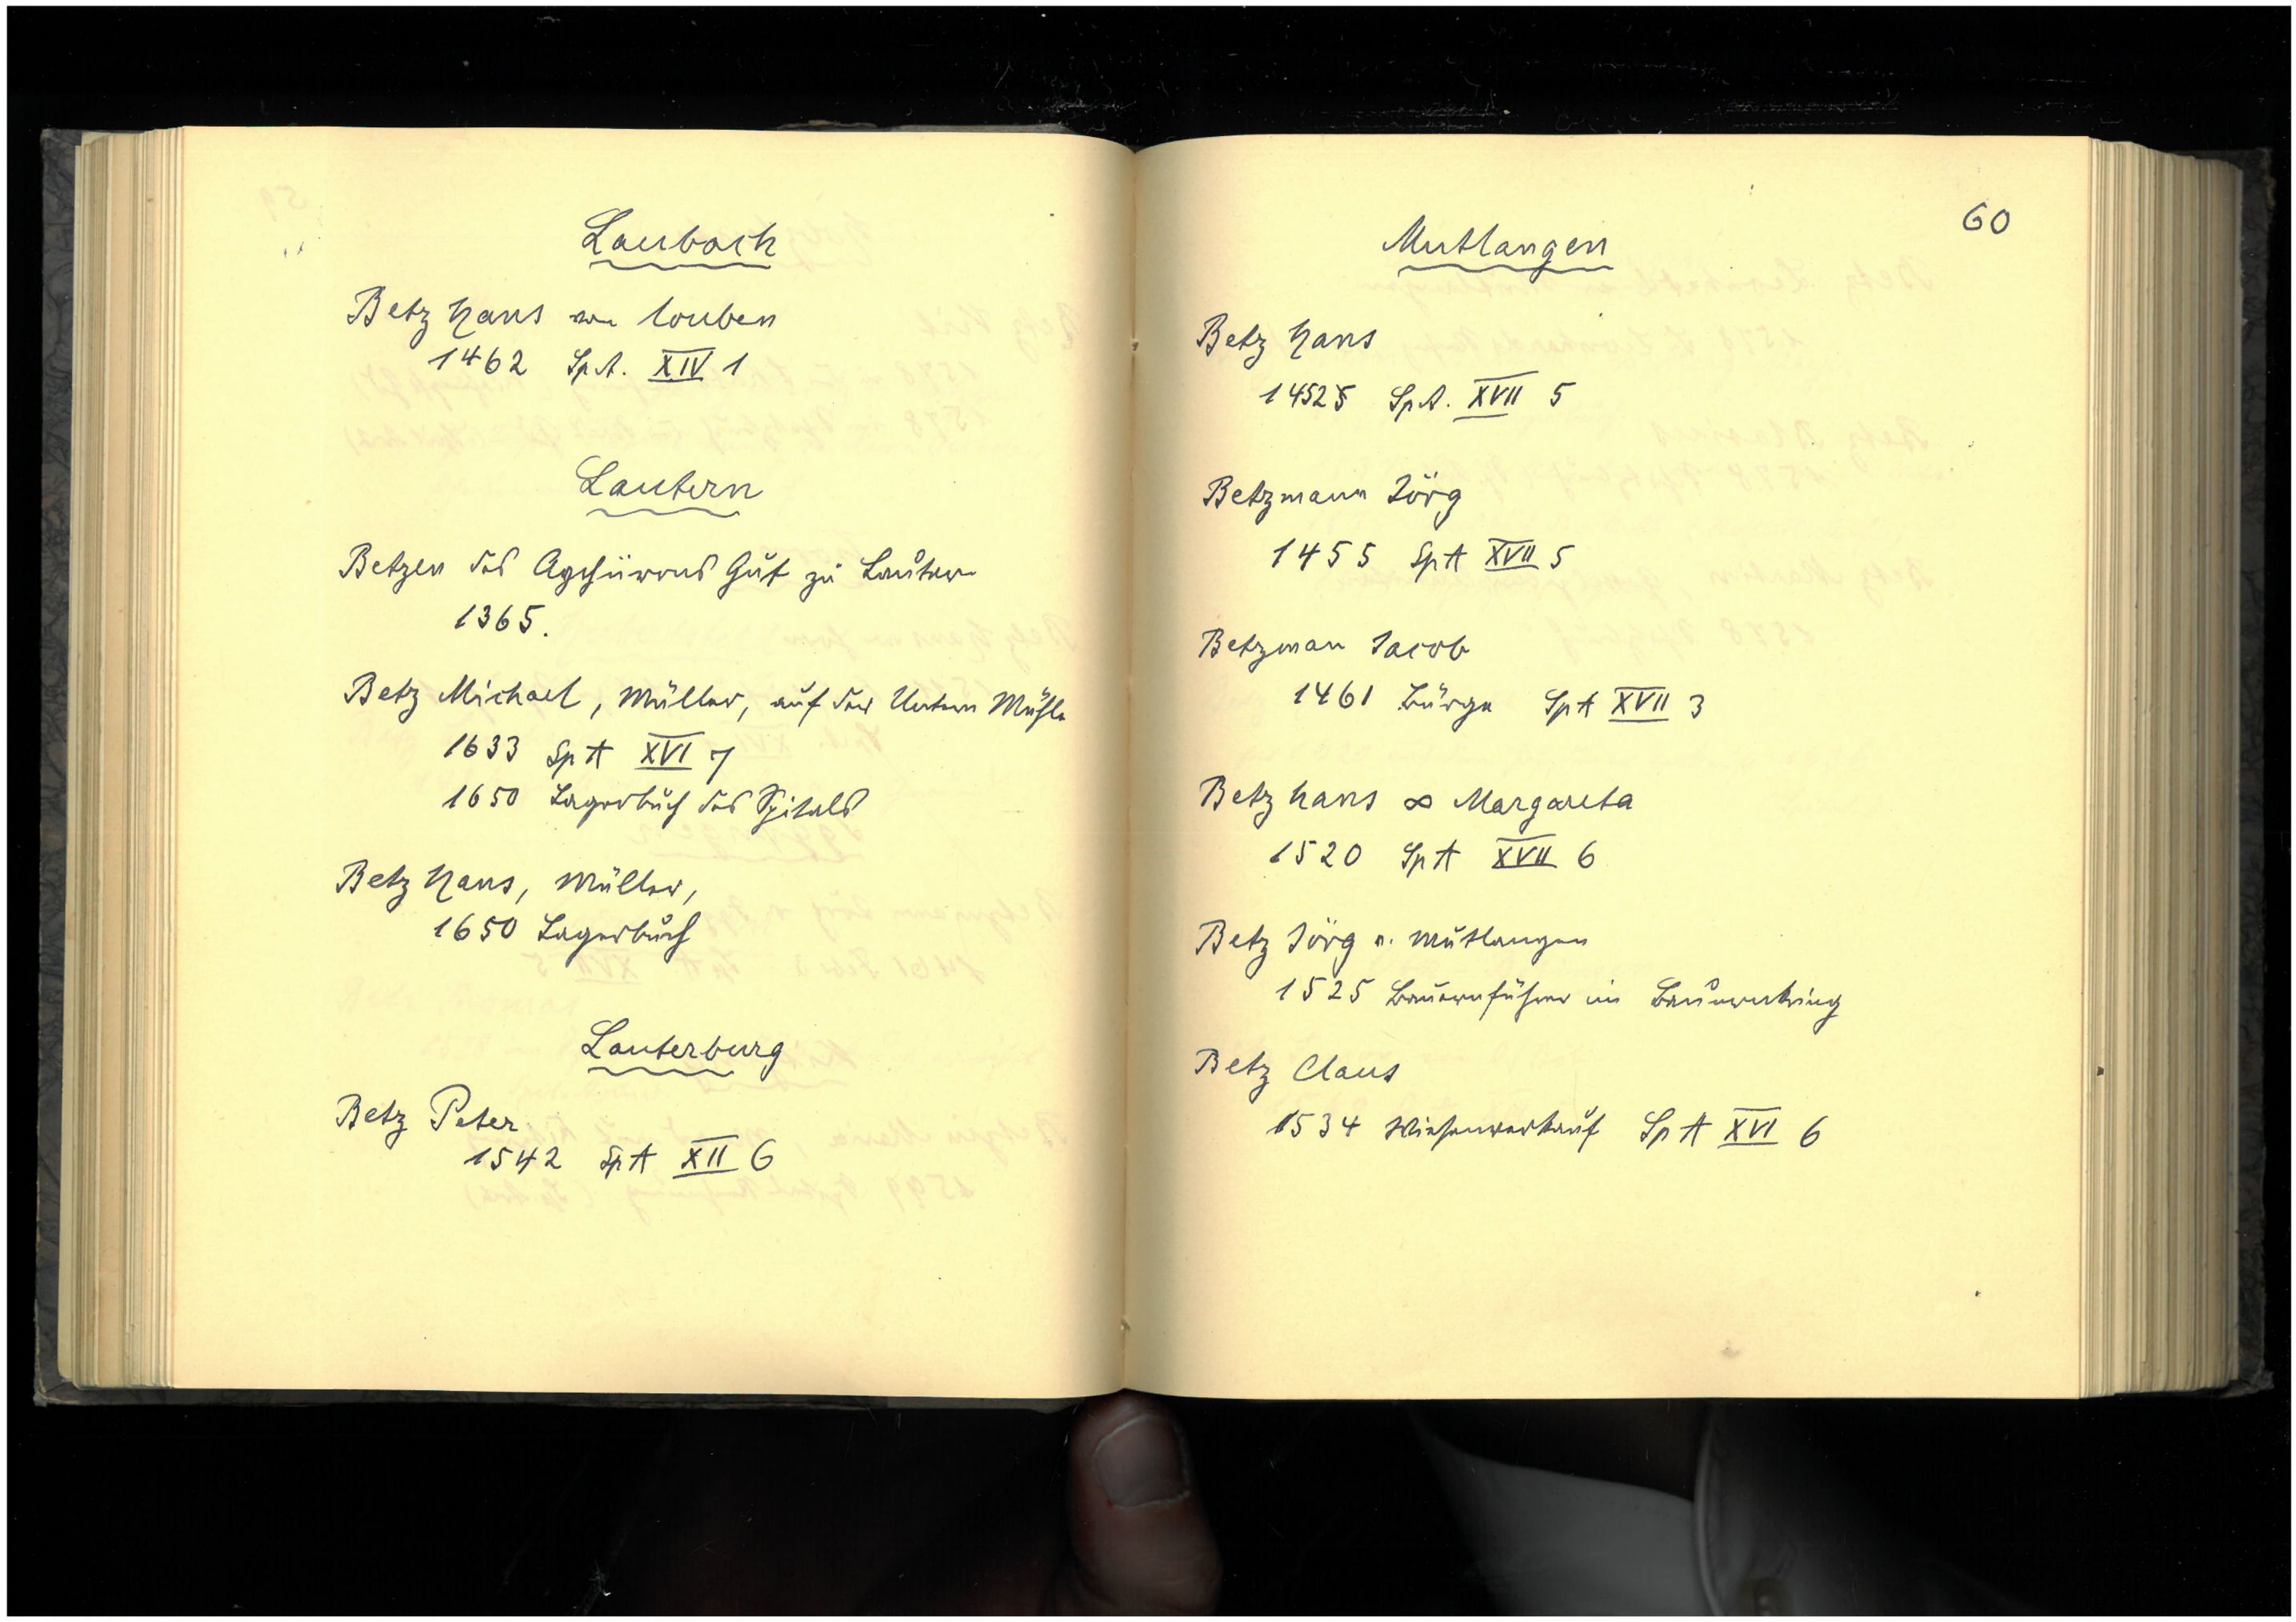 Laubach
Betz Hans von louben
1462 SpA. XIV 1
Lautern
Betzen des Gut zu Lautern
1365.
Betz Michael, Müller, auf der Untern Mühle
1633 SpA XVI 7
1650 Lagerbuch des Spitals
Betz Hans, Müller,
1650 Lagerbuch
Lauterburg
Betz Peter
1542 SpA XII 6
60
Mutlangen
Betz Hans
SpA. XVII 5
Betzmann Jörg
1455 SpA XVII 5
Betzman Jacob
1461 Bürge SpA XVII 3
Betz Hans ∞ Margareta
1520 SpA XVII 6
Betz Jörg v. Mutlangen
1525 Bauernführer im Bauernkrieg
Betz Claus
1534 Wiesenverkauf SpA XVI 6